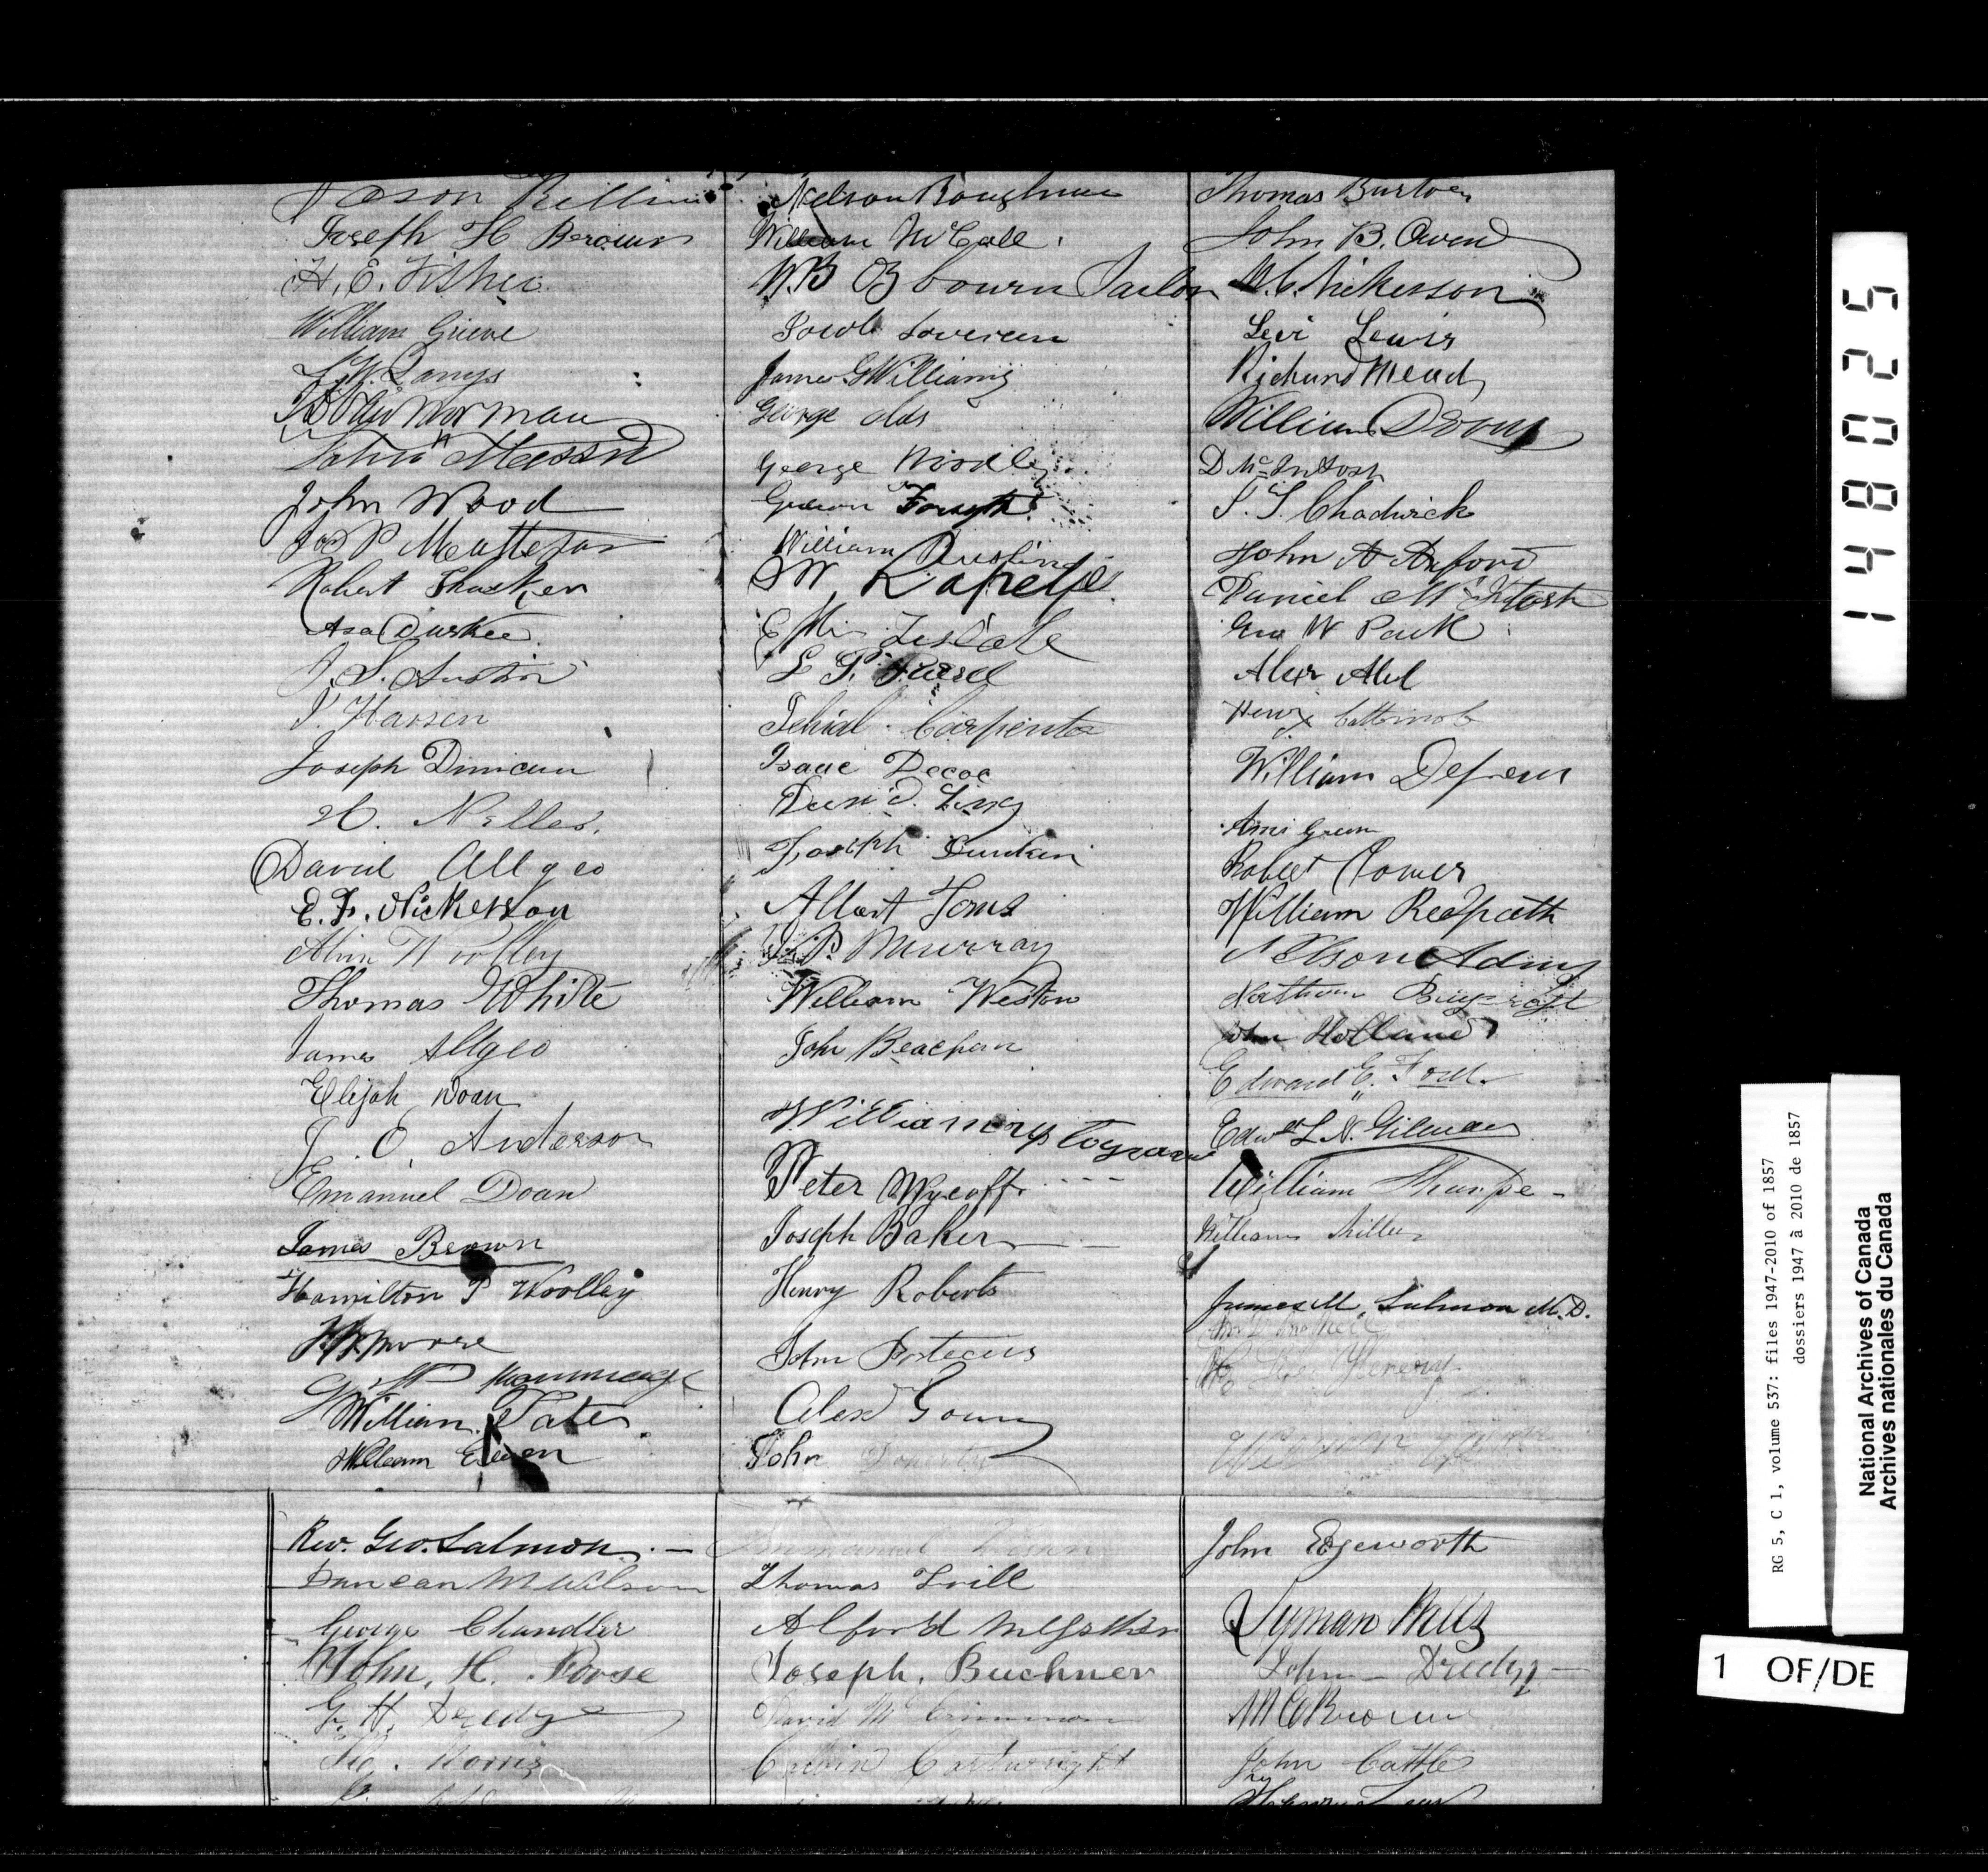 Joseph H Brown
H. E. Fisher
William Grieve
Norman
John
John Wood
Jos P Matteson
Robert Thasker
Asa Durkee
J. S. Austin
J. Hansen
Joseph Duncan
H. Nelles.
David Allgeo
E. F. Nickerson
Alvin Woolley
Thomas White
James Allgeo
Elijah Doan
J. O. Anderson
Emanuel Doan
James Brown
Hamilton P Woolley
Moore
William Tate
William Ewen
Nelson Boughner
William McCall
W.B Osbourn Tailor
Jacob Sovereen
James G Williams
George Olds
George Woodley
Gideon Forsyth
William Austin
W, Rapelje
Tisdale
L P.
Jehial Carpenter
Isaac Decoe
David Long
Joseph Dunkin
Albert Toms
J. P. Murray
William Weston
John Beacham
William
Peter Wycoff
Joseph Baker
Henry Roberts
John Porteous
Alexd Young
John Doherty
Thomas Burtoen
John B. Owen
M. C. Nickerson
Levi Lewis
Richard Mead
William
D McIntosh
S. S. Chadwick
John A Axford
Daniel McIntosh
Geo W Park
Alexr Abel
Henry
William Defrew
Ami Green
Robert Power
William Redpath
Nelson Adms
Nathan
John Holland
Edward E. Foull
Edwd L. N. Gilman
William Sharpe
William Miller
James M. Salmon M.D.
William
Rev. Geo. Salmon
Duncan McWilson
George Chandler
John, H. Poose
G. H. Dredge
Morris
Thomas Trill
Alford
Joseph, Buchner
David McCrimmon
Calvin Cartwright
John Edgeworth
Lyman Wells
John Dredge
M C Brown
John Cattle
148025
RG 5, C 1, volume 537: files 1947-2010 of 1857
dossiers 1947 à 2010 de 1857
National Archives of Canada
Archives nationales du Canada
1 OF/DE